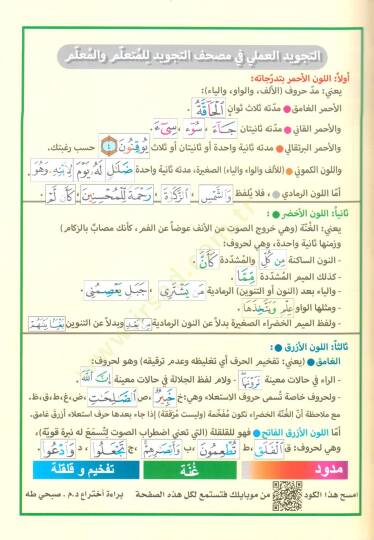 التجويد العملي في مصحف التجويد للمتعلّم والمُعلّم
أولاً: اللون الأحمر بتدرجاته:
يعني: مدّ حروف (الألف، والواو، والياء):
الأحمر الغامق ● مدّته ثلاث ثوانٍ الْحَاقَّةُ
والأحمر القاني ● مدّته ثانيتان جَآءَ ، سُوٓء ، سِيٓءَ .
والأحمر البرتقالي ● مدته ثانية واحدة أو ثانيتان أو ثلاث يُوقِنُونَ ٤ حسب رغبتك.
واللون الكموني ● (للألف والواو والياء) الصغيرة، مدته ثانية واحدة ضَلَٰلٍ لَهُۥ يَوْمَ لِرَبِّهِۦ وَهُوَ
أمّا اللون الرمادي ● ، فلا يُلفظ وَالشَّمْسِ ، الزَّكَوٰةَ ، رَحْمَةً لِلْمُحْسِنِينَ ، كَأَن لَّمْ .
ثانياً: اللون الأخضر ● :
يعني: الغُنّة (وهي خروج الصوت من الأنف عوضاً عن الفم، كأنك مصابٌ بالزكام)
وزمنها ثانية واحدة، وهي لحروف:
- النون الساكنة مِن كُلِّ والمُشدّدة كَأَنَّ .
- كذلك الميم المُشدّدة مِمَّا .
- والياء بعد (النون أو التنوين) الرمادية مَن يَشْتَرِى ، جَبَلٍ يَعْصِمُنِى .
- ومثلها الواو عِلْمٍ وَيَتَّخِذَهَا .
- ولفظ الميم الخضراء الصغيرة بدلاً عن النون الرمادية مِنۢ بَعْدِ وبدلاً عن التنوين بَغْيًۢا بَيْنَهُمْ
ثالثاً: اللون الأزرق ● :
الغامق ● (يعني: تفخيم الحرف أي تغليظه وعدم ترقيقه) وهو لحروف:
- الراء في حالات معينة تَرَوْنَهَا - ولام لفظ الجلالة في حالات معينة إِنَّ اللَّهَ .
- ولحروف خاصة تُسمى حروف الاستعلاء وهي: خ خَبِيرٌ ، ص الصَّٰلِحَٰتِ ، ض، غ، ط، ق، ظ.
مع ملاحظة أنّ الغُنّة الخضراء تكون مُفخّمة (وليست مُرققة) إذا جاء بعدها حرف استعلاء أزرق غامق.
أمّا اللون الأزرق الفاتح ● فهو للقلقلة (التي تعني اضطراب الصوت لتُسمَع له نبرة قويّة)،
وهي لحروف: ق الْفَلَقِ ، ط تُطْعِمُونَ ، ب وَأَبْصَرْهُمْ ، ج تَجْعَلُوا۟ ، د وَادْعُوا۟ .
مدود غُنّة تفخيم و قلقلة
امسح هذا الكود من موبايلك فتستمع لكل هذه الصفحة براءة أختراع د.م . صبحي طه